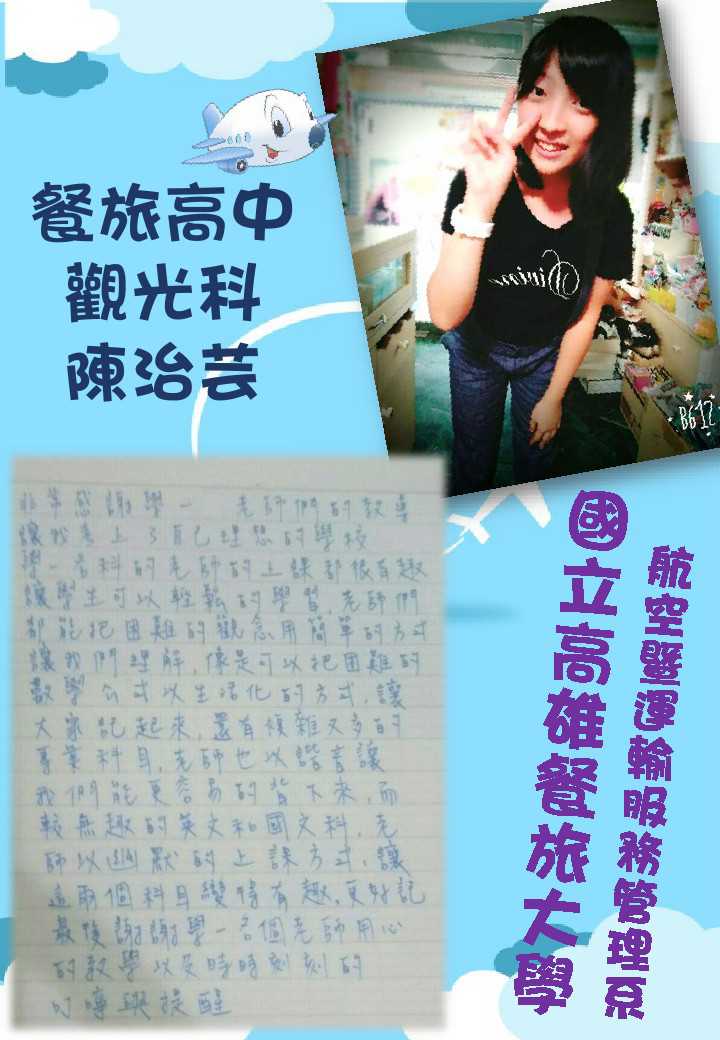 餐旅高中
觀光科
陳治芸
Division
B612
國立高雄餐旅大學
航空暨運輸服務管理系
非常感謝學一 老師們的教導
讓我考上了自己理想的學校
學一各科的老師的上課都很有趣
讓學生可以輕鬆的學習,老師們
都能把困難的觀念用簡單的方式
讓我們理解,像是可以把困難的
數學公式以生活化的方式,讓
大家記起來,還有複雜又多的
專業科目,老師也以諧音讓
我們能更容易的背下來,而
較無趣的英文和國文科,老
師以幽默的上課方式,讓
這兩個科目變得有趣,更好記
最後謝謝學一各個老師用心
的教學以及時時刻刻的
叮嚀與提醒